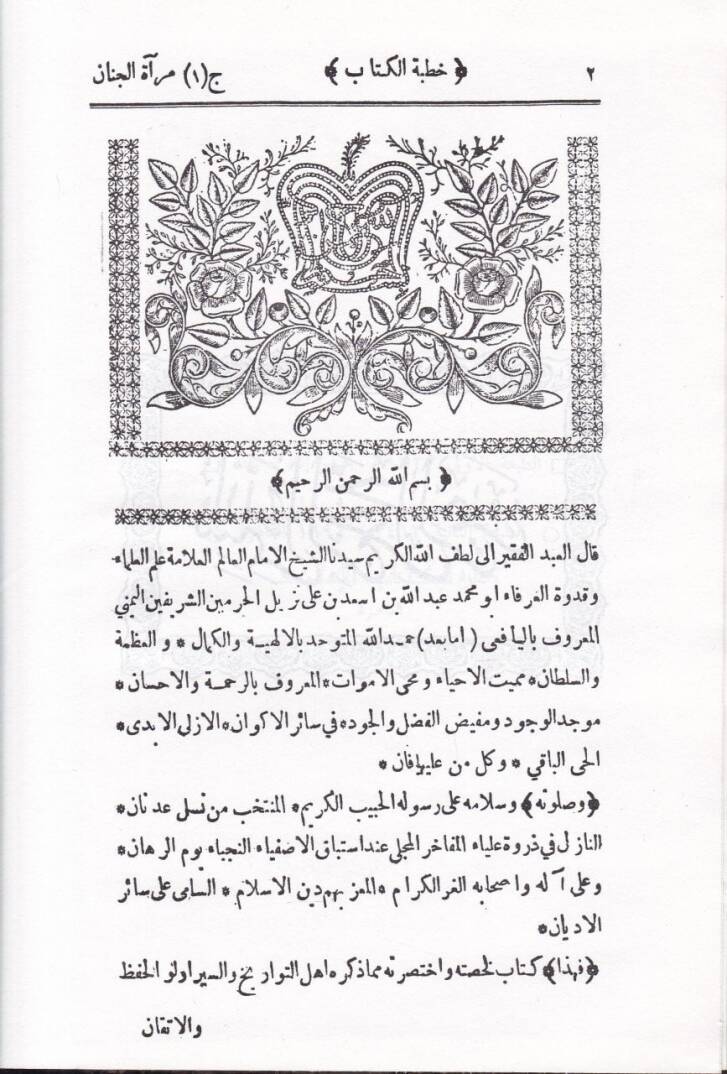 ٢ ﴿ خطبة الكتاب ﴾ ج(١) مرآة الجنان
﴿ بسم الله الرحمن الرحيم ﴾
قال العبد الفقير الى لطف الله الكريم سيدنا الشيخ الامام العالم العلامة علم العلماء
وقدوة العرفاء ابو محمد عبد الله بن اسعد بن على نزيل الحرمين الشريفين اليمني
المعروف باليافعى ( امابعد ) حمد الله المتوحد بالالهية والكمال * والعظمة
والسلطان * مميت الاحياء ومحى الاموات * المعروف بالرحمة والاحسان *
موجد الوجود ومفيض الفضل والجود * في سائر الاكوان * الازلى الابدى *
الحى الباقي * وكل من عليها فان *
﴿ وصلوته ﴾ وسلامه على رسوله الحبيب الكريم * المنتخب من نسل عدنان *
النازل في ذروة علياء المفاخر المجلى عند استباق الاصفياء النجباء يوم الرهان *
وعلى آله واصحابه الغر الكرام * المعز بهم دين الاسلام * السامى على سائر
الاديان *
﴿ فهذا ﴾ كتاب لخصته واختصرته مماذكره اهل التواريخ والسير اولو الحفظ
والاتقان